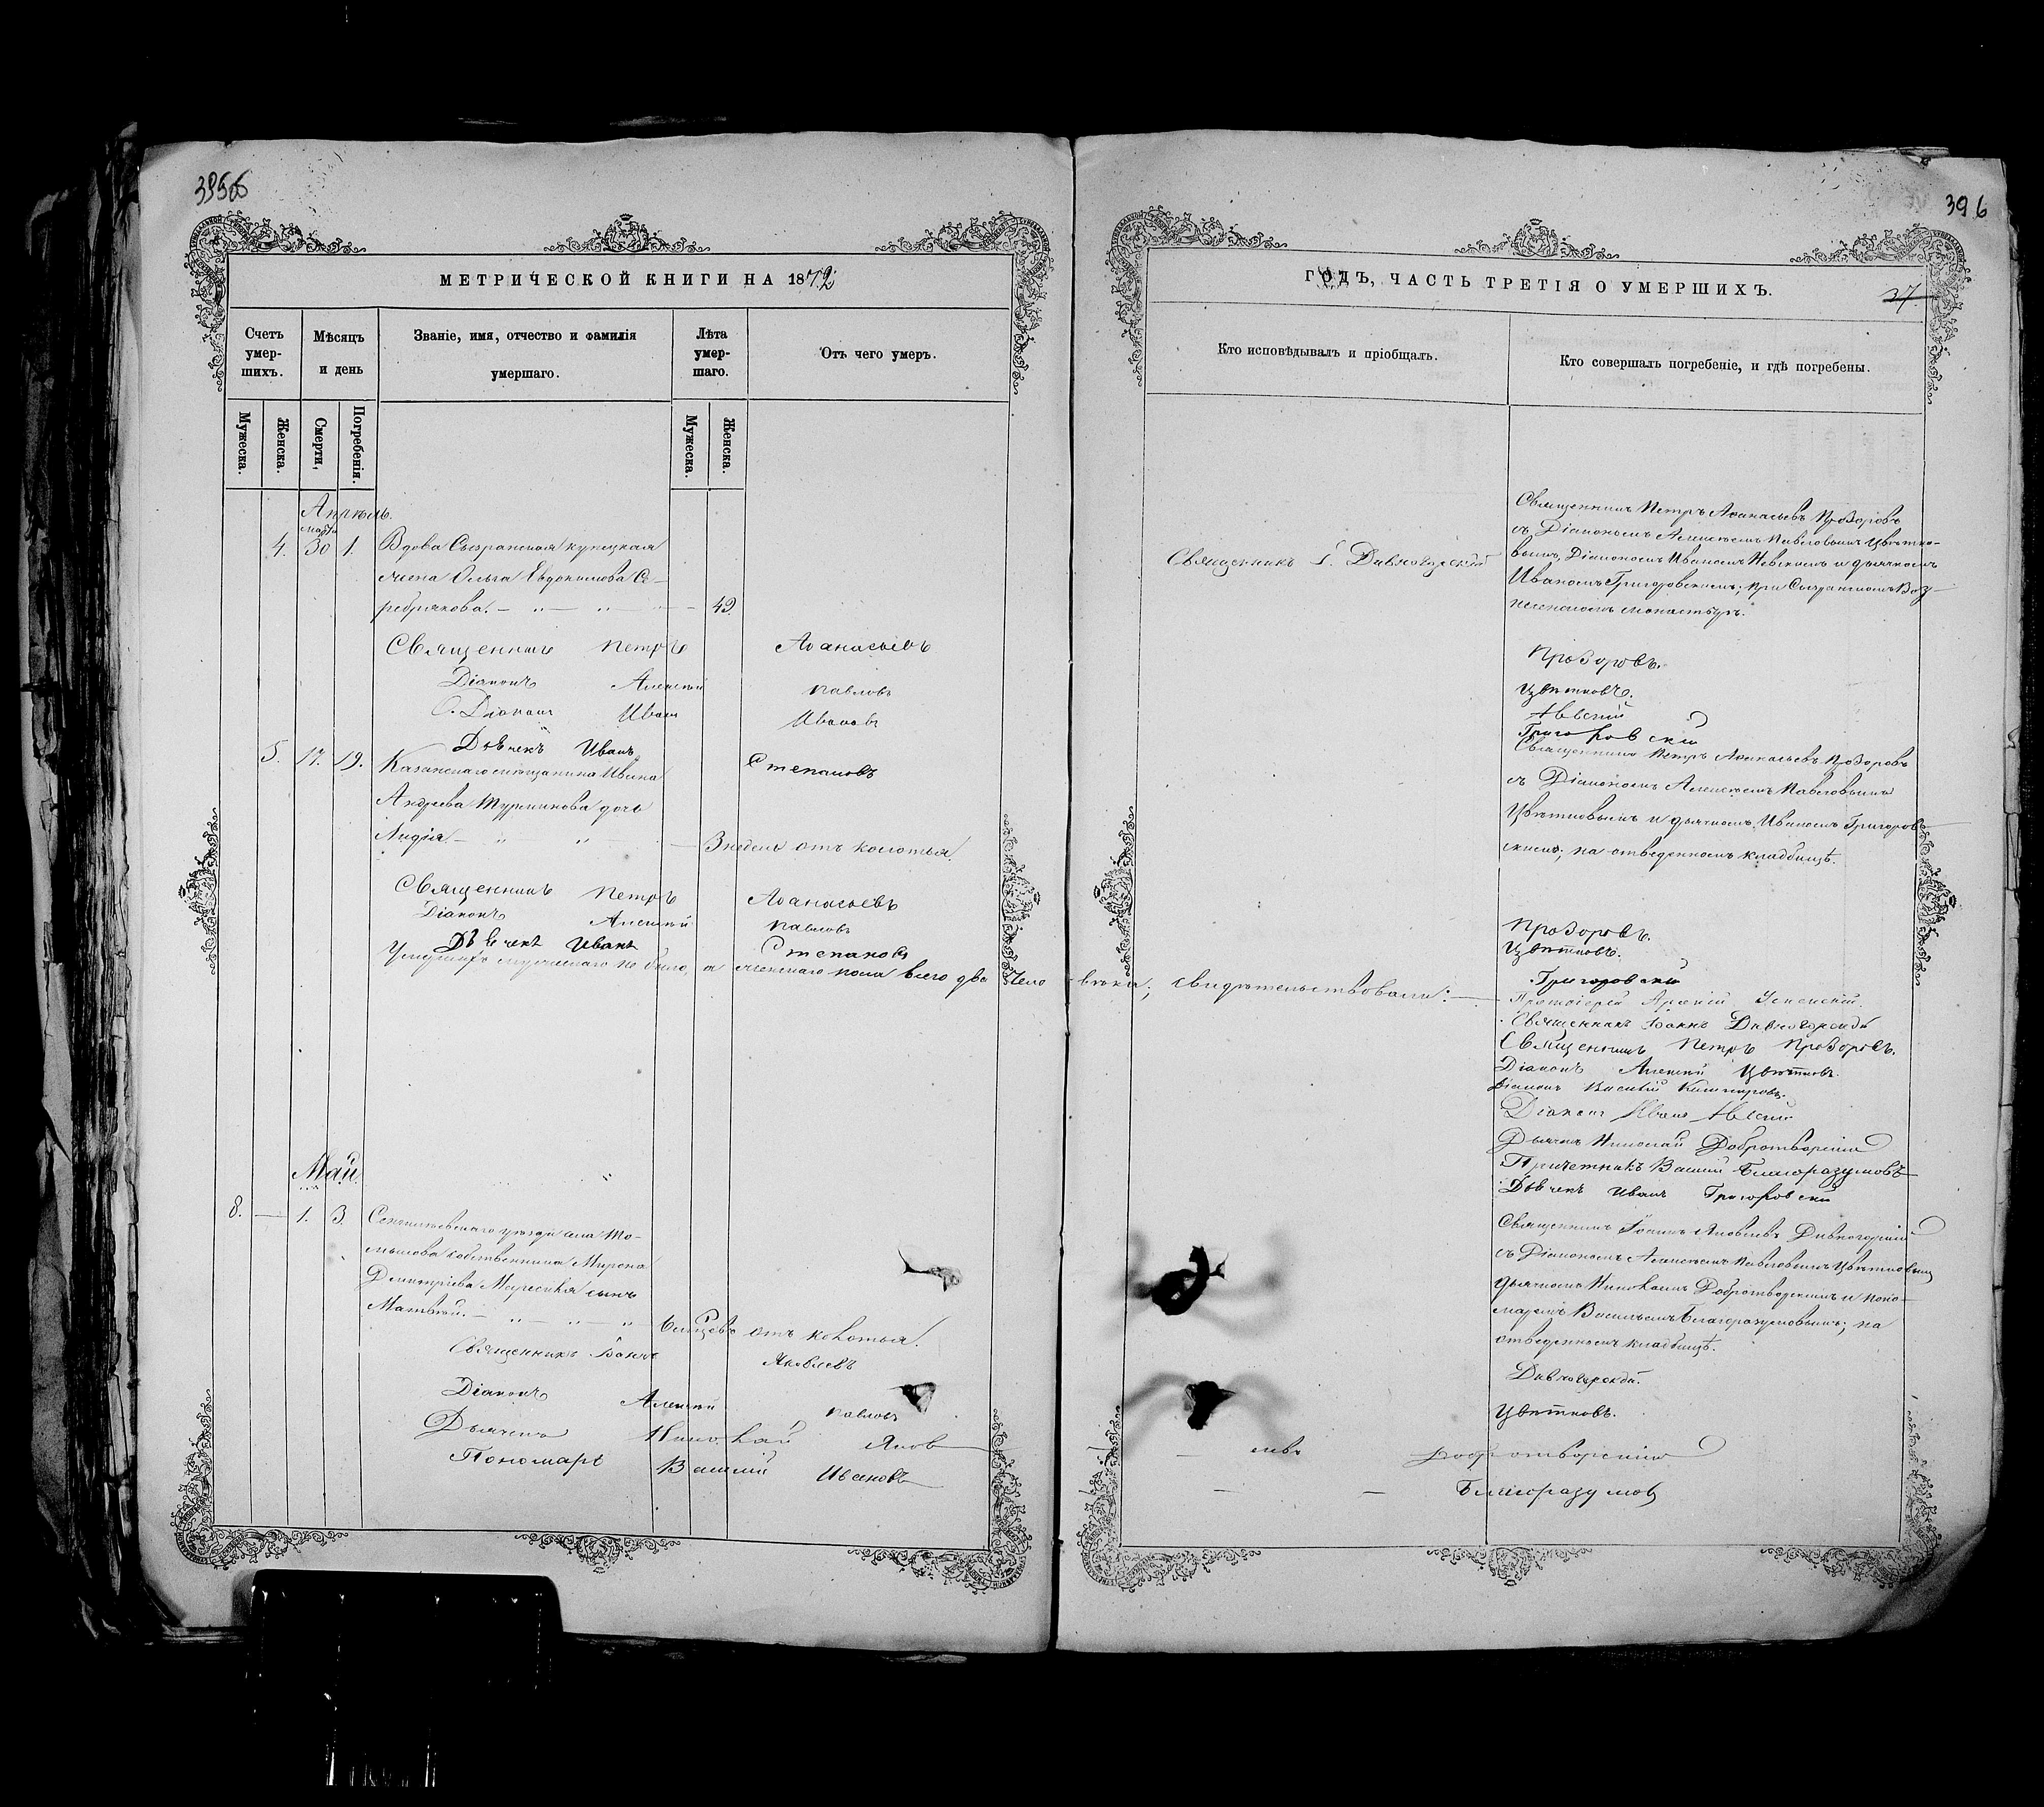 396
МЕТРИЧЕСКОЙ КНИГИ НА 1872
ГОДЪ, ЧАСТЬ ТРЕТІЯ О УМЕРШИХЪ.
37.
Счетъ умер-шихъ.
Мѣсяцъ и день
Званіе, имя, отчество и фамилія
умершаго.
Лѣта умер-шаго.
Отъ чего умеръ.
Кто исповѣдывалъ и пріобщалъ.
Кто совершалъ погребеніе, и гдѣ погребены.
Мужеска.
Женска.
Смерти,
Погребенія.
Мужеска.
Женска.
Апрѣль.
марта
4. 30 1. Вдова Сызранская купецкая
жена Ольга Евдокимова Се-
ребрякова. 49.
Священникъ І. Дивногорскій
Священникъ Петръ Аѳанасьевъ Прозоровъ
съ Діакономъ Алексѣемъ Павловымъ Цвѣтко-
вымъ, Діакономъ Иваномъ Невскимъ и дьячкомъ
Иваномъ Григоровскимъ; при Сызранскомъ Воз-
несенскомъ монастырѣ.
Священникъ Петръ Аѳанасьевъ Прозоровъ.
Діаконъ Алексѣй Павловъ Цвѣтковъ.
Діаконъ Иванъ Ивановъ
Дьячекъ Иванъ Степановъ Григоровскій
5. 17. 19. Казанскаго мѣщанина Ивана
Андреева дочь
Лидія. 3 недѣль отъ колотья.
Священникъ Петръ Аѳанасьевъ Прозоровъ
съ Діакономъ Алексѣемъ Павловымъ
Цвѣтковымъ и дьячкомъ Иваномъ Григоров-
скимъ; на отведенномъ кладбищѣ.
Священникъ Петръ Аѳанасьевъ Прозоровъ.
Діаконъ Алексѣй Павловъ Цвѣтковъ.
Дьячекъ Иванъ Степановъ Григоровскій
Умершихъ мужескаго не было, а женскаго пола всего два чело-вѣка; свидѣтельствовали:
Протоіерей Арсеній Успенскій.
Священникъ Іоаннъ Дивногорскій
Священникъ Петръ Прозоровъ.
Діаконъ Алексѣй Цвѣтковъ.
Діаконъ Василій
Діаконъ Иванъ
Дьячекъ Николай Добротворскій
Причетникъ Василій Благоразумовъ
Дьячекъ Иванъ Григоровскій
Май
8. — 1. 3. Сенгилѣевскаго уѣзда села То-
мышова собственника Мирона
Дмитріева сынъ
Матвѣй. 6 мѣсяцевъ отъ колотья.
Священникъ Іоаннъ Яковлевъ Дивногорскій
съ Діакономъ Алексѣемъ Павловымъ Цвѣтковымъ
дьячкомъ Николаемъ Добротворскимъ и поно-
маремъ Васильемъ Благоразумовымъ; на
отведенномъ кладбищѣ.
Священникъ Іоаннъ Яковлевъ Дивногорскій.
Діаконъ Алексѣй Павловъ Цвѣтковъ.
Дьячекъ Николай Яковлевъ Добротворскій
Пономарь Василій Ивановъ Благоразумовъ